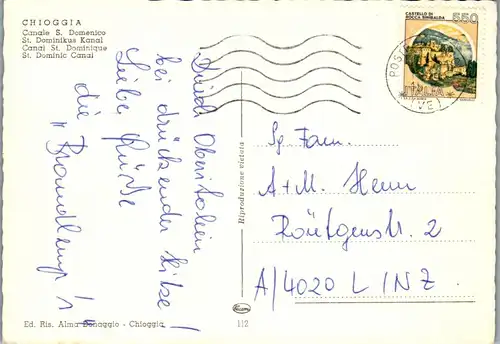 CHIOGGIA
Canale S. Domenico
St. Dominikus Kanal
Canal St. Dominique
St. Dominic Canal
Durch Oberitalien
bei drückender Hitze!
Liebe Grüße
die "Brandlengs"!
CASTELLO DI
ROCCA SINIBALDA
550
ITALIA
POSTE
(VE)
Riproduzione vietata
Sp Fam.
A+M. Henn
Röntgenstr. 2
A/4020 LINZ
Ed. Ris. Alma Bonaggio - Chioggia
112